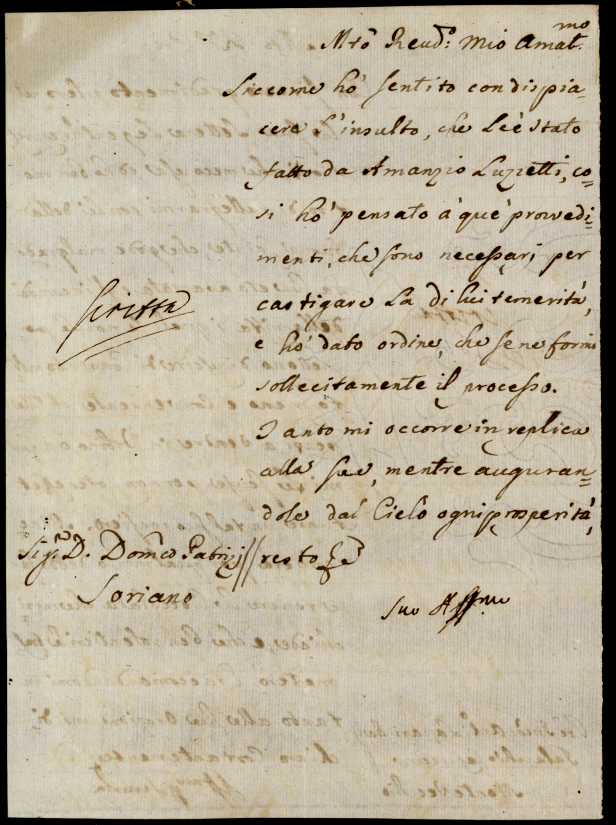 Mto Reudo: mio Amatmo:
Siccome hò sentito con dispia=
cere l'insulto, che Le è stato
fatto da Amanzio Luzietti, co=
si hò pensato à què provvedi=
menti, che sono necessarj per
castigare La di lui temerità,
e hò dato ordine, che se ne formi
sollecitamente il processo.
Tanto mi occorre in replica
alla sua, mentre auguran=
dole dal Cielo ogni prosperità,
scritta
Sigr. D. Domco Patrizj // resto
Soriano
Suo Affmo